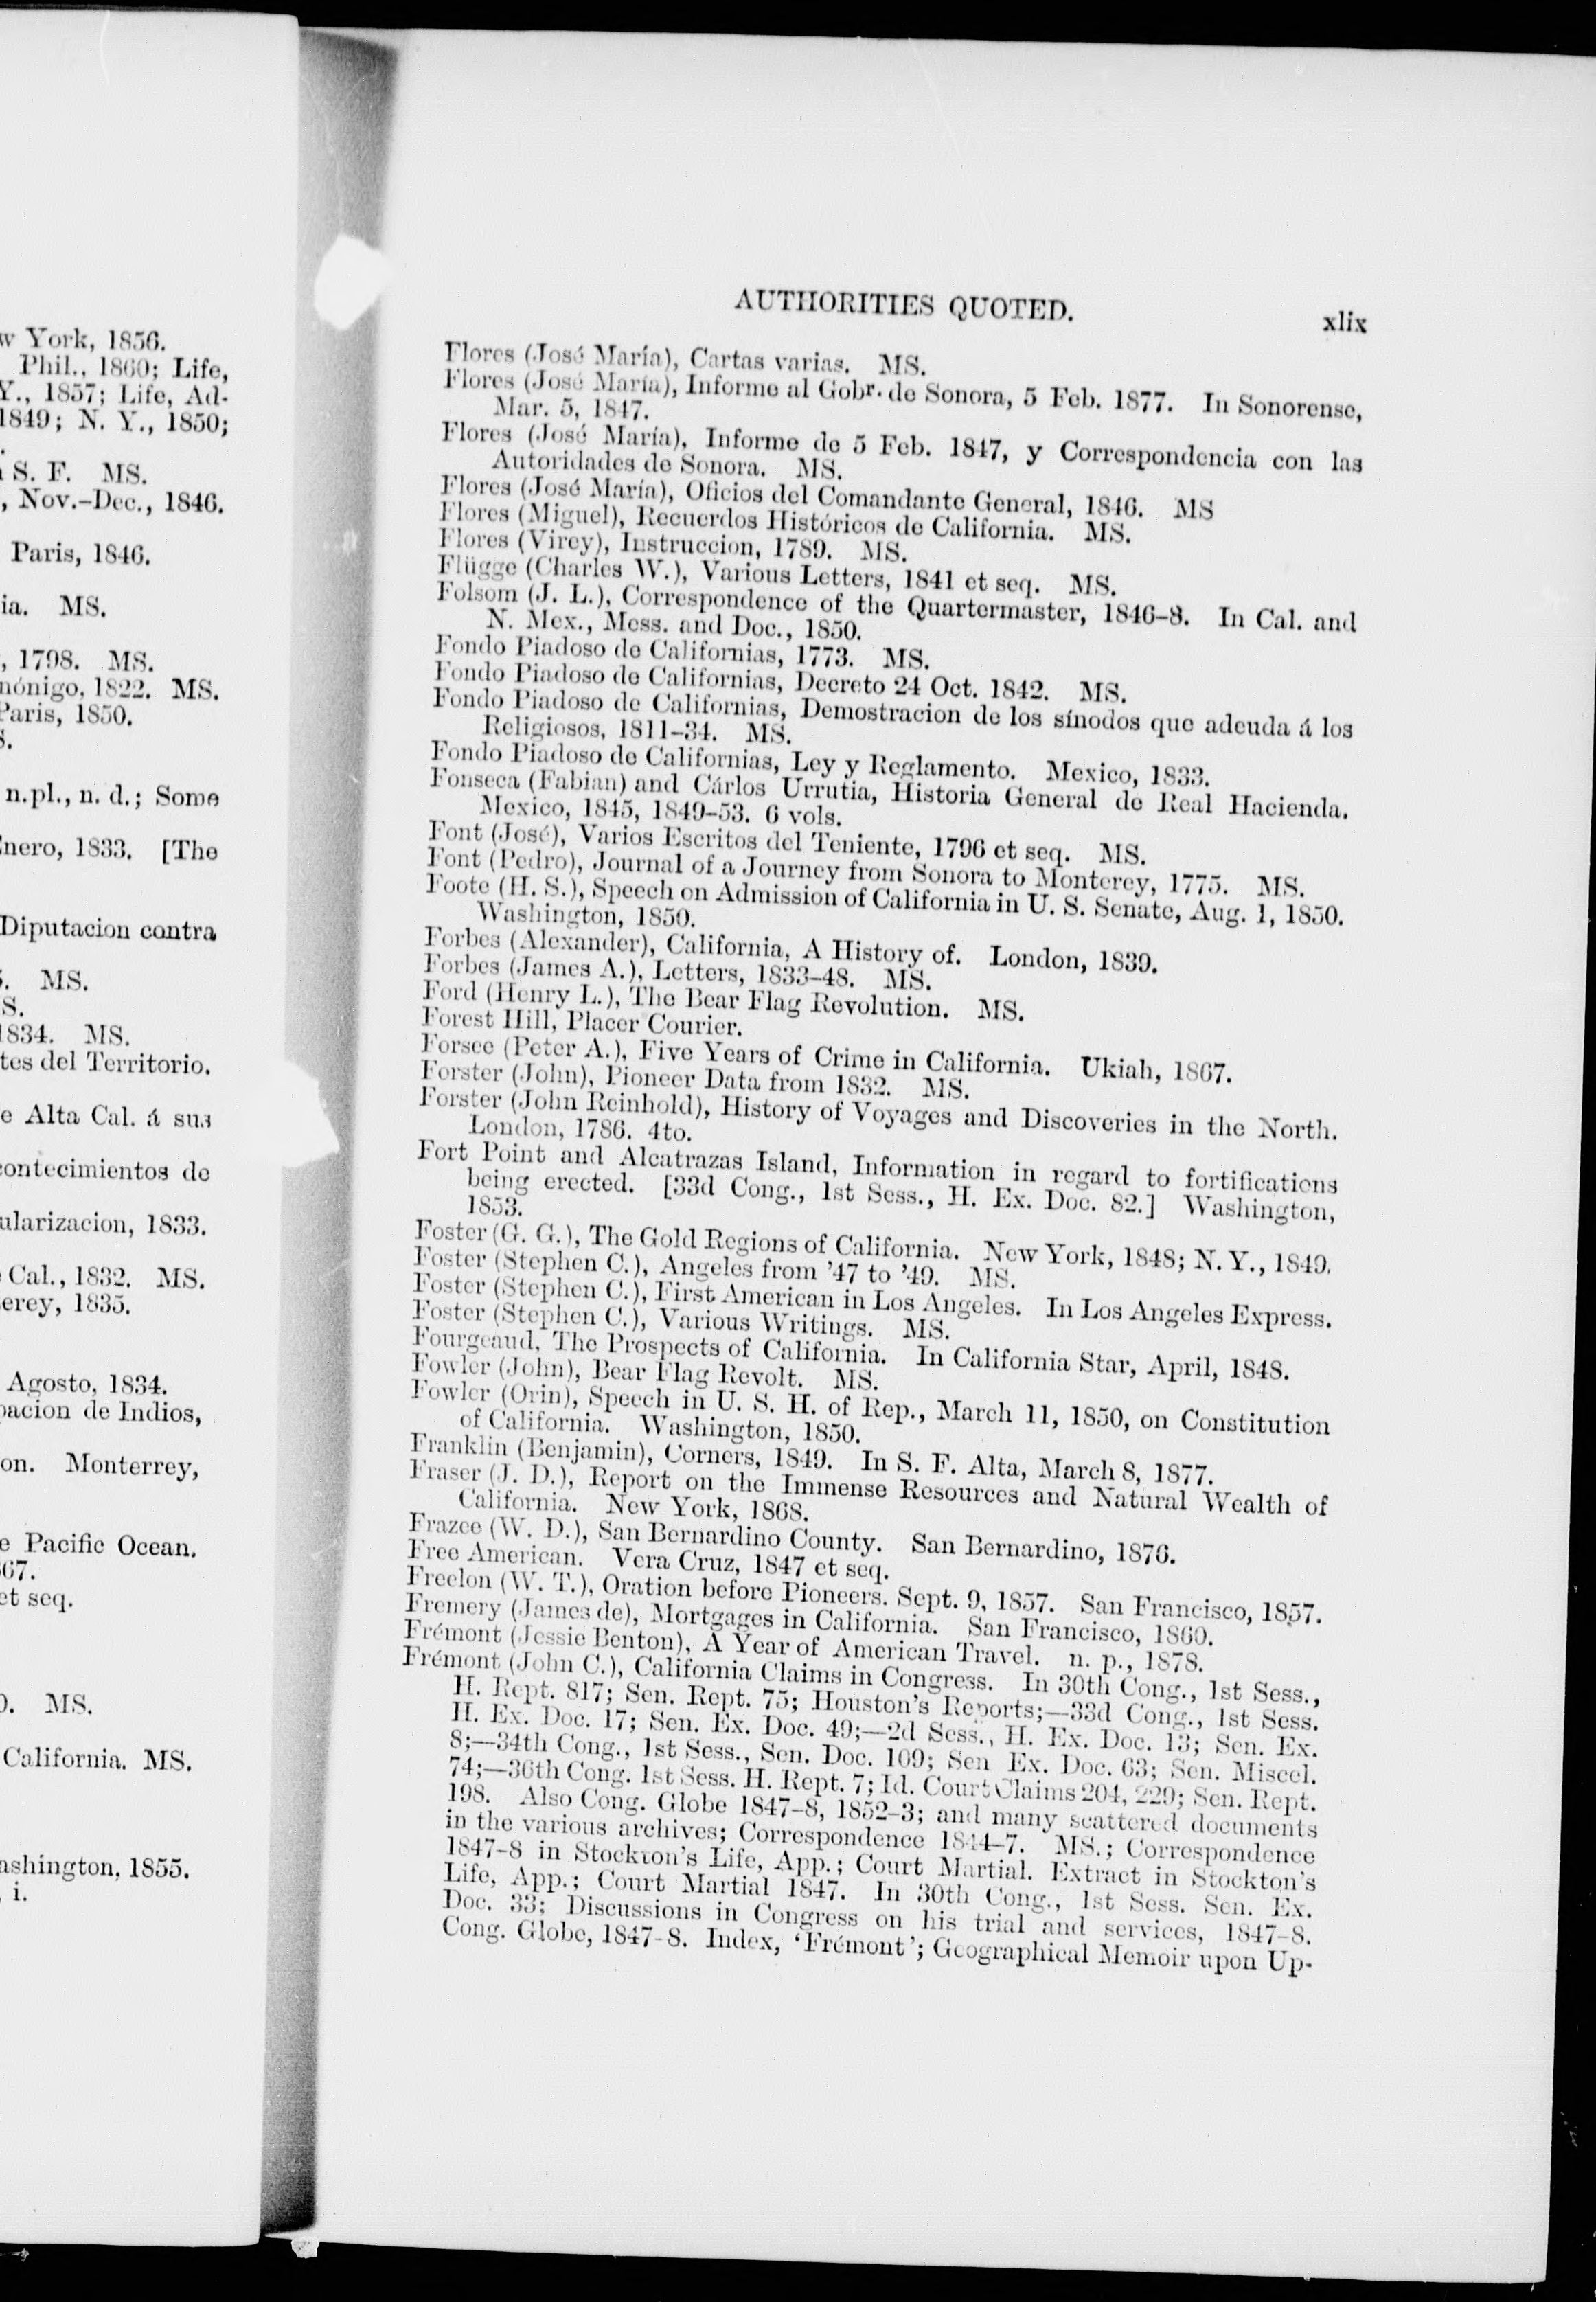 w York, 1856.
Phil., 1860; Life,
Y., 1857; Life, Ad-
1849; N. Y., 1850;
S. F. MS.
, Nov.-Dec., 1846.
Paris, 1846.
ia. MS.
, 1798. MS.
nónigo, 1822. MS.
Paris, 1850.
S.
n.pl., n. d.; Some
Enero, 1833. [The
Diputacion contra
. MS.
S.
1834. MS.
tes del Territorio.
e Alta Cal. á sus
contecimientos de
ularizacion, 1833.
Cal., 1832. MS.
erey, 1835.
Agosto, 1834.
pacion de Indios,
on. Monterrey,
e Pacific Ocean.
67.
et seq.
. MS.
California. MS.
ashington, 1855.
, i.
AUTHORITIES QUOTED. xlix
Flores (José María), Cartas varias. MS.
Flores (José María), Informe al Gobr. de Sonora, 5 Feb. 1877. In Sonorense,
Mar. 5, 1847.
Flores (José María), Informe de 5 Feb. 1847, y Correspondencia con las
Autoridades de Sonora. MS.
Flores (José María), Oficios del Comandante General, 1846. MS
Flores (Miguel), Recuerdos Históricos de California. MS.
Flores (Virey), Instruccion, 1789. MS.
Flügge (Charles W.), Various Letters, 1841 et seq. MS.
Folsom (J. L.), Correspondence of the Quartermaster, 1846-8. In Cal. and
N. Mex., Mess. and Doc., 1850.
Fondo Piadoso de Californias, 1773. MS.
Fondo Piadoso de Californias, Decreto 24 Oct. 1842. MS.
Fondo Piadoso de Californias, Demostracion de los sínodos que adeuda á los
Religiosos, 1811-34. MS.
Fondo Piadoso de Californias, Ley y Reglamento. Mexico, 1833.
Fonseca (Fabian) and Cárlos Urrutia, Historia General de Real Hacienda.
Mexico, 1845, 1849-53. 6 vols.
Font (José), Varios Escritos del Teniente, 1796 et seq. MS.
Font (Pedro), Journal of a Journey from Sonora to Monterey, 1775. MS.
Foote (H. S.), Speech on Admission of California in U. S. Senate, Aug. 1, 1850.
Washington, 1850.
Forbes (Alexander), California, A History of. London, 1839.
Forbes (James A.), Letters, 1833-48. MS.
Ford (Henry L.), The Bear Flag Revolution. MS.
Forest Hill, Placer Courier.
Forsee (Peter A.), Five Years of Crime in California. Ukiah, 1867.
Forster (John), Pioneer Data from 1832. MS.
Forster (John Reinhold), History of Voyages and Discoveries in the North.
London, 1786. 4to.
Fort Point and Alcatrazas Island, Information in regard to fortifications
being erected. [33d Cong., 1st Sess., H. Ex. Doc. 82.] Washington,
1853.
Foster (G. G.), The Gold Regions of California. New York, 1848; N. Y., 1849.
Foster (Stephen C.), Angeles from '47 to '49. MS.
Foster (Stephen C.), First American in Los Angeles. In Los Angeles Express.
Foster (Stephen C.), Various Writings. MS.
Fourgeaud, The Prospects of California. In California Star, April, 1848.
Fowler (John), Bear Flag Revolt. MS.
Fowler (Orin), Speech in U. S. H. of Rep., March 11, 1850, on Constitution
of California. Washington, 1850.
Franklin (Benjamin), Corners, 1849. In S. F. Alta, March 8, 1877.
Fraser (J. D.), Report on the Immense Resources and Natural Wealth of
California. New York, 1868.
Frazee (W. D.), San Bernardino County. San Bernardino, 1876.
Free American. Vera Cruz, 1847 et seq.
Freelon (W. T.), Oration before Pioneers. Sept. 9, 1857. San Francisco, 1857.
Fremery (James de), Mortgages in California. San Francisco, 1860.
Frémont (Jessie Benton), A Year of American Travel. n. p., 1878.
Frémont (John C.), California Claims in Congress. In 30th Cong., 1st Sess.,
H. Rept. 817; Sen. Rept. 75; Houston's Reports;—33d Cong., 1st Sess.
H. Ex. Doc. 17; Sen. Ex. Doc. 49;—2d Sess., H. Ex. Doc. 13; Sen. Ex.
8;—34th Cong., 1st Sess., Sen. Doc. 109; Sen Ex. Doc. 63; Sen. Miscel.
74;—36th Cong. 1st Sess. H. Rept. 7; Id. Court Claims 204, 229; Sen. Rept.
198. Also Cong. Globe 1847-8, 1852-3; and many scattered documents
in the various archives; Correspondence 1844-7. MS.; Correspondence
1847-8 in Stockton's Life, App.; Court Martial. Extract in Stockton's
Life, App.; Court Martial 1847. In 30th Cong., 1st Sess. Sen. Ex.
Doc. 33; Discussions in Congress on his trial and services, 1847-8.
Cong. Globe, 1847-8. Index, 'Frémont'; Geographical Memoir upon Up-